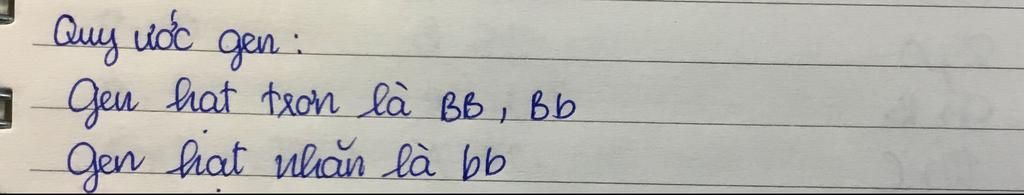 Quy ước gen :
Gen hạt trơn là BB, Bb
Gen hạt nhăn là bb